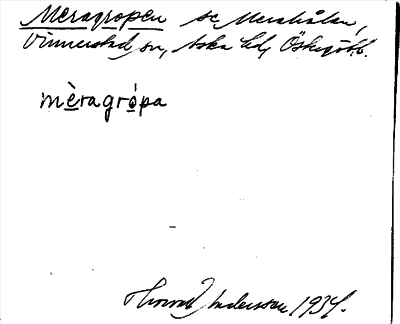 Meragropen se Merahålan,
Vinnerstad sn, Aska hd, Östergötl.
mèragrópa
Thorvald Andersson 1934.